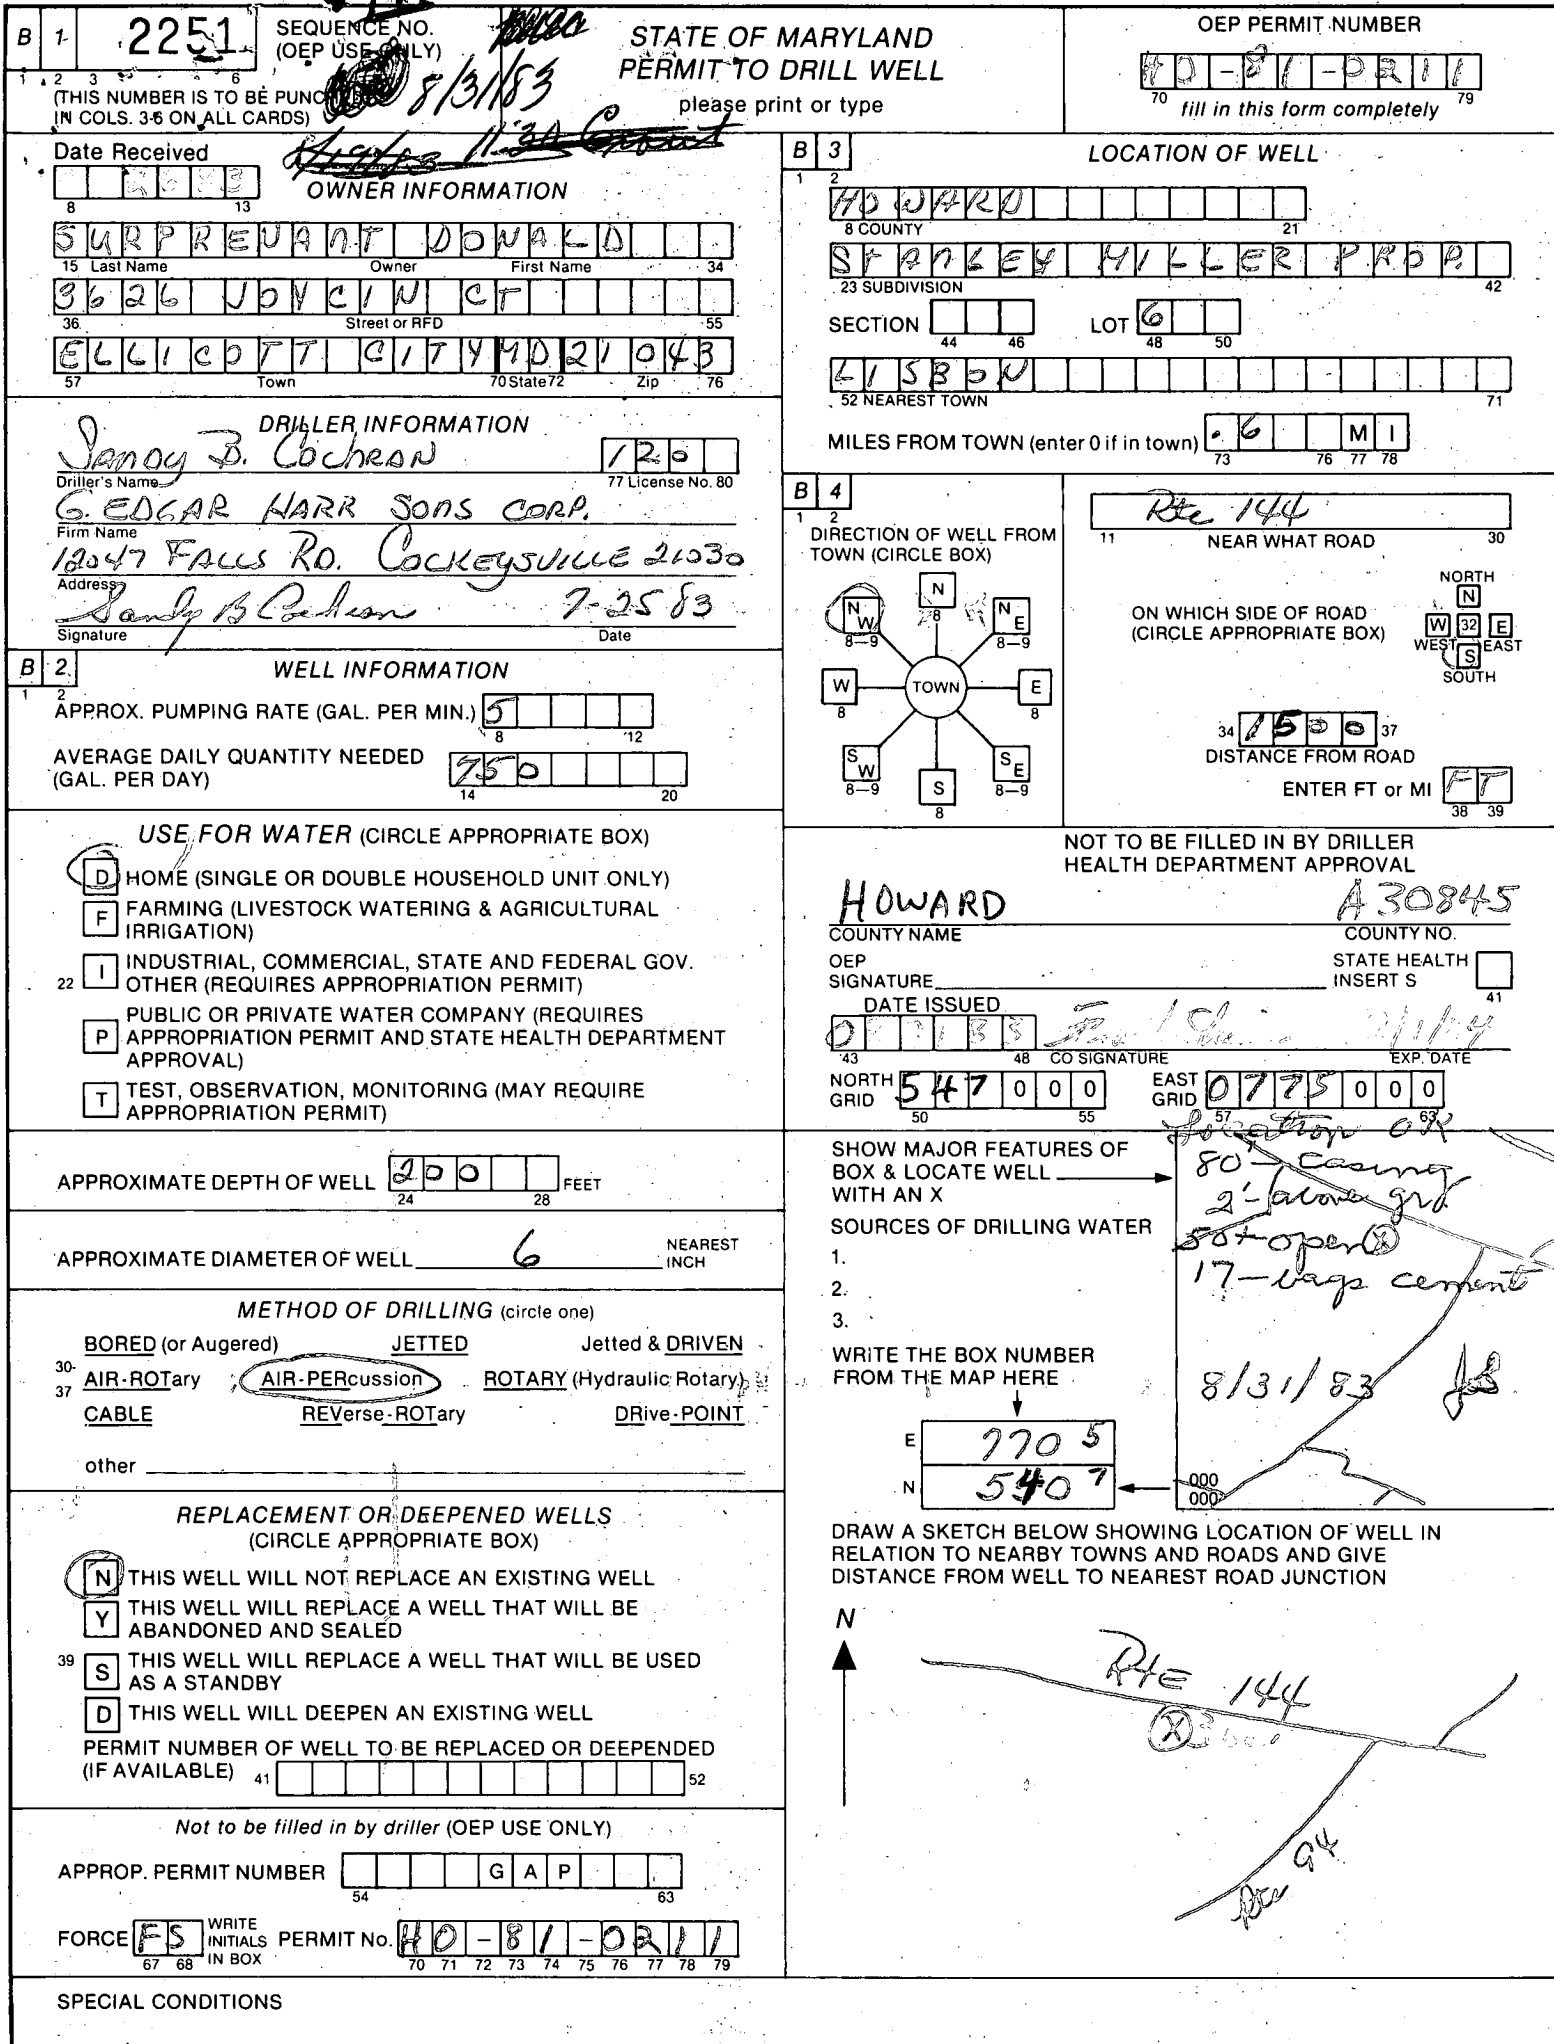 B 1 2251 SEQUENCE NO.
(OEP USE ONLY)
1 2 3 6
(THIS NUMBER IS TO BE PUNCHED
IN COLS. 3-6 ON ALL CARDS)
8/31/83
STATE OF MARYLAND
PERMIT TO DRILL WELL
please print or type
OEP PERMIT NUMBER
HO-81-0211
70 79
fill in this form completely
Date Received
8 13
OWNER INFORMATION
SURPREVANT DONALD
15 Last Name Owner First Name 34
3626 JOYCIN CT
36 Street or RFD 55
ELLICOTT CITY MD 21043
57 Town 70 State 72 Zip 76
DRILLER INFORMATION
Sandy B. Cochran 120
Driller's Name 77 License No. 80
G. EDGAR HARR SONS CORP.
Firm Name
12047 FALLS RD. COCKEYSVILLE 21030
Address
Sandy B Cochran 7-25 83
Signature Date
B 2 WELL INFORMATION
1 2
APPROX. PUMPING RATE (GAL. PER MIN.) 5
8 12
AVERAGE DAILY QUANTITY NEEDED
(GAL. PER DAY) 750
14 20
USE FOR WATER (CIRCLE APPROPRIATE BOX)
D HOME (SINGLE OR DOUBLE HOUSEHOLD UNIT ONLY)
F FARMING (LIVESTOCK WATERING & AGRICULTURAL
IRRIGATION)
22 I INDUSTRIAL, COMMERCIAL, STATE AND FEDERAL GOV.
OTHER (REQUIRES APPROPRIATION PERMIT)
P PUBLIC OR PRIVATE WATER COMPANY (REQUIRES
APPROPRIATION PERMIT AND STATE HEALTH DEPARTMENT
APPROVAL)
T TEST, OBSERVATION, MONITORING (MAY REQUIRE
APPROPRIATION PERMIT)
APPROXIMATE DEPTH OF WELL 200 FEET
24 28
APPROXIMATE DIAMETER OF WELL 6 NEAREST
INCH
METHOD OF DRILLING (circle one)
BORED (or Augered) JETTED Jetted & DRIVEN
30-
37
AIR-ROTary AIR-PERcussion ROTARY (Hydraulic Rotary)
CABLE REVerse-ROTary DRive-POINT
other
REPLACEMENT OR DEEPENED WELLS
(CIRCLE APPROPRIATE BOX)
N THIS WELL WILL NOT REPLACE AN EXISTING WELL
Y THIS WELL WILL REPLACE A WELL THAT WILL BE
ABANDONED AND SEALED
39 S THIS WELL WILL REPLACE A WELL THAT WILL BE USED
AS A STANDBY
D THIS WELL WILL DEEPEN AN EXISTING WELL
PERMIT NUMBER OF WELL TO BE REPLACED OR DEEPENDED
(IF AVAILABLE) 41 52
Not to be filled in by driller (OEP USE ONLY)
APPROP. PERMIT NUMBER GAP
54 63
FORCE FS WRITE
INITIALS
IN BOX PERMIT No. HO-81-0211
67 68 70 71 72 73 74 75 76 77 78 79
SPECIAL CONDITIONS
B 3 LOCATION OF WELL
1 2
HOWARD
8 COUNTY 21
STANLEY MILLER PROP.
23 SUBDIVISION 42
SECTION LOT 6
44 46 48 50
LISBON
52 NEAREST TOWN 71
MILES FROM TOWN (enter 0 if in town) .6 MI
73 76 77 78
B 4
1 2
DIRECTION OF WELL FROM
TOWN (CIRCLE BOX)
N
8
NW
8-9
NE
8-9
W
8
TOWN
E
8
SW
8-9
S
8
SE
8-9
Rte 144
11 NEAR WHAT ROAD 30
ON WHICH SIDE OF ROAD
(CIRCLE APPROPRIATE BOX)
NORTH
N
W 32 E
WEST EAST
S
SOUTH
34 1500 37
DISTANCE FROM ROAD
ENTER FT or MI FT
38 39
NOT TO BE FILLED IN BY DRILLER
HEALTH DEPARTMENT APPROVAL
HOWARD A 30845
COUNTY NAME COUNTY NO.
OEP
SIGNATURE
STATE HEALTH
INSERT S
41
DATE ISSUED
43 48 CO SIGNATURE EXP. DATE
NORTH
GRID 547000
50 55
EAST
GRID 0775000
57 63
Location OK
80' - casing
2' - above grd
50+ open X
17 - bags cement
8/31/83
SHOW MAJOR FEATURES OF
BOX & LOCATE WELL
WITH AN X
SOURCES OF DRILLING WATER
1.
2.
3.
WRITE THE BOX NUMBER
FROM THE MAP HERE
E 770 5
N 540 7
000
000
DRAW A SKETCH BELOW SHOWING LOCATION OF WELL IN
RELATION TO NEARBY TOWNS AND ROADS AND GIVE
DISTANCE FROM WELL TO NEAREST ROAD JUNCTION
N
RtE 144
X
Rte 94